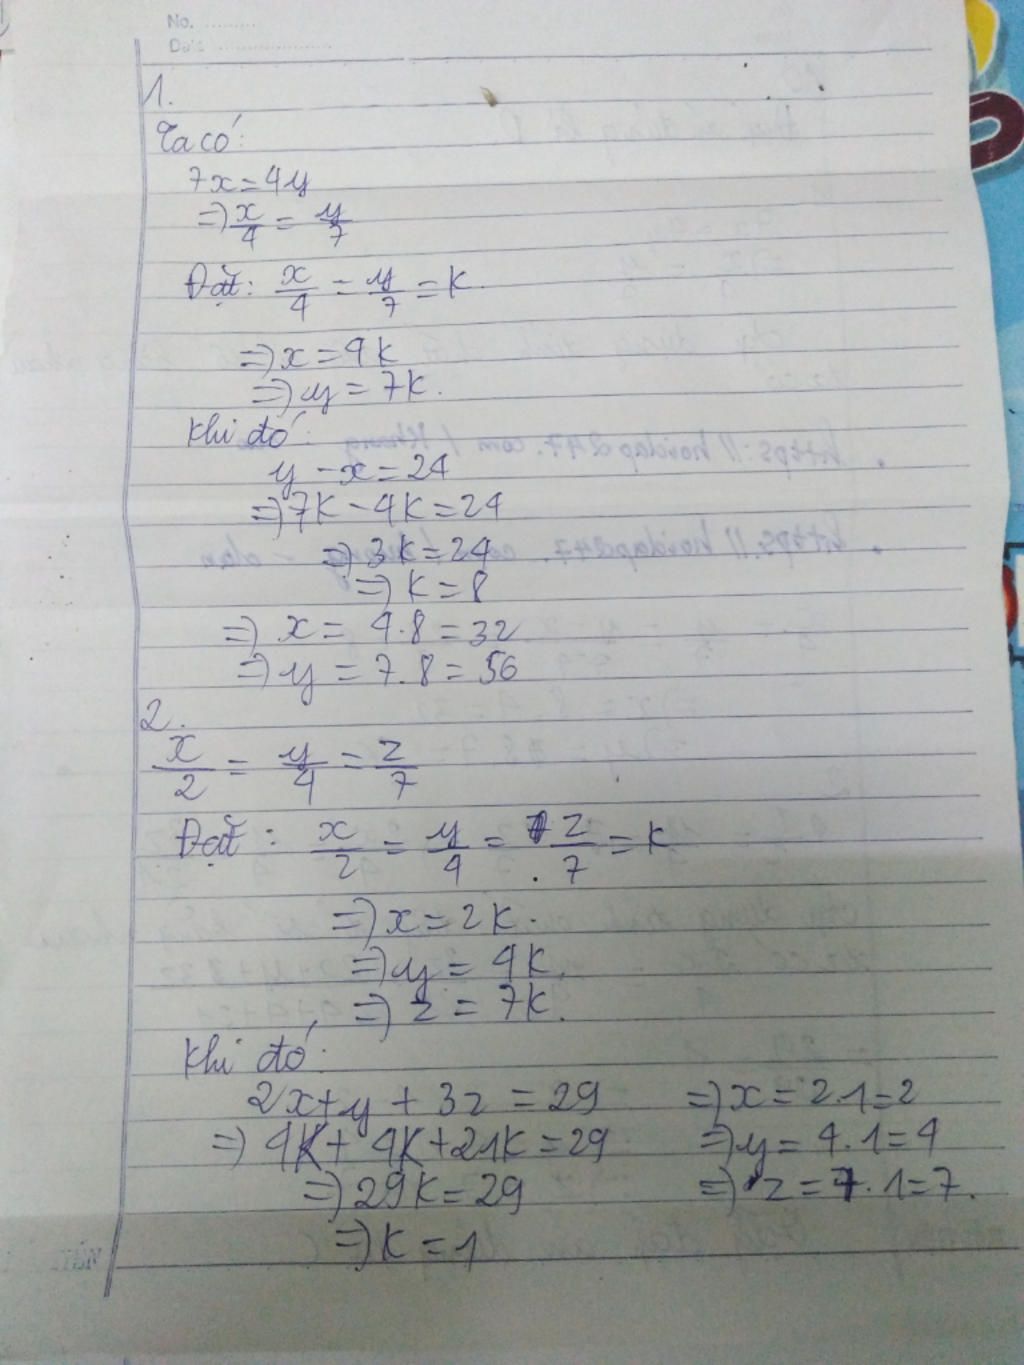 No. ........
Date ....................
1.
Ta có:
7x=4y
=> x/4 = y/7
Đặt: x/4 = y/7 = K.
=> x = 4K
=> y = 7K.
Khi đó:
y - x = 24
=> 7K - 4K = 24
=> 3K = 24
=> K = 8
=> x = 4.8 = 32
=> y = 7.8 = 56
2.
x/2 = y/4 = z/7
Đặt: x/2 = y/4 = z/7 = K
=> x = 2K.
=> y = 4K.
=> z = 7K.
Khi đó:
2x+y + 3z = 29 => x = 2.1=2
=> 4K + 4K + 21K = 29 => y = 4.1=4
=> 29K = 29 => z = 7.1=7.
=> K = 1